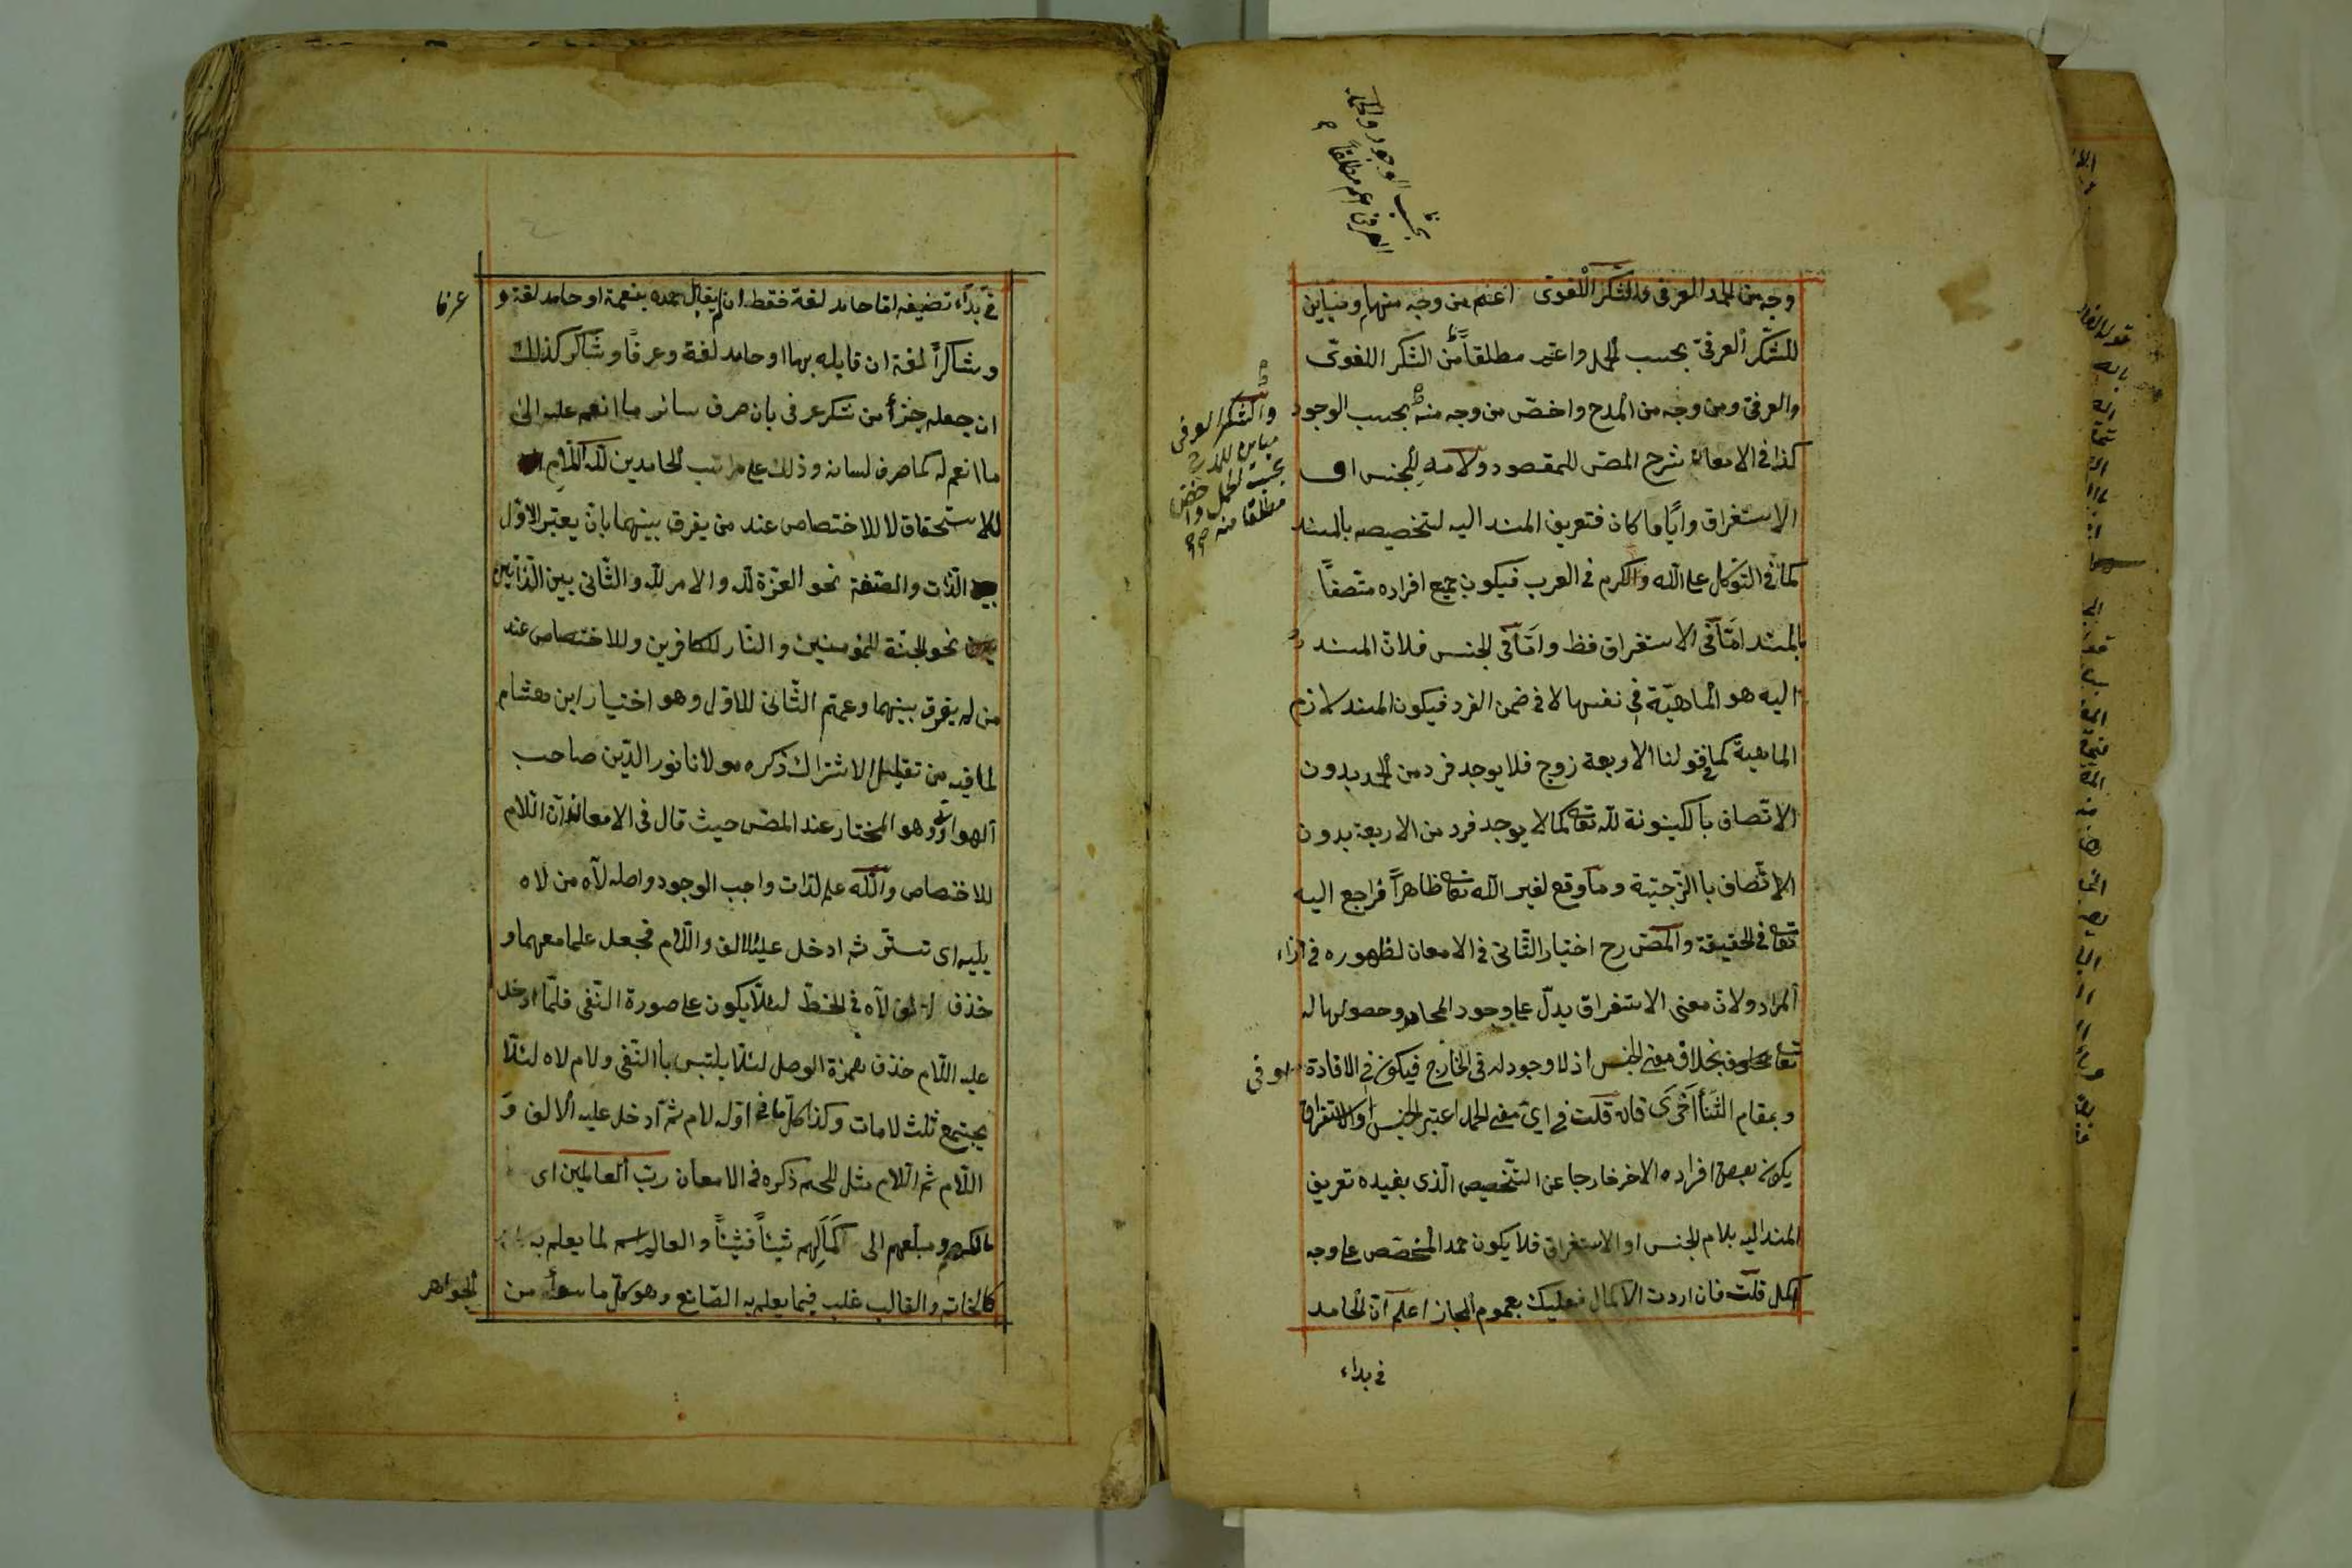 وجه من الحمد العرفى والشكر اللغوى اعم من وجه منهما ومباين
للشكر العرفى بحسب الحمل واعم مطلقاً من الشكر اللغوى
والعرفى ومن وجه من المدح واخص من وجه منه بحسب الوجود
كذا فى الامعان شرح المض للمقصود ولامه للجنس او
الاستغراق واياً ما كان فتعريف المسند اليه لتخصيصه بالمسند
كما فى التوكل على الله والكرم فى العرب فيكون جميع افراده متصفاً
بالمسند اما فى الاستغراق فظ واما فى الجنس فلان المسند
اليه هو الماهية فى نفسها لا فى ضمن الفرد فيكون المسند لازم
الماهية كما فى قولنا الاربعة زوج فلا يوجد فرد من الحمد بدون
الاتصاف بالكينونة لله تعا كما لا يوجد فرد من الاربعة بدون
الاتصاف با الزوجية وما وقع لغير الله تعا ظاهراً فراجع اليه
تعا فى الحقيقة والمض رح اختيار الثانى فى الامعان لظهوره فى اداء
المراد ولان معنى الاستغراق يدل على وجود المحامد وحصولها له
تعا بخلاف معنى الجنس اذ لا وجود له فى الخارج فيكون فى الافادة اوفى
وبمقام الثنأ احرى فان قلت فى اى معنى الحمد اعتبر الجنس او الاستغراق
يكون بعض افراده الاخر خارجا عن التخصيص الذى يفيده تعريف
المسند اليه بلام الجنس او الاستغراق فلا يكون حمد المخصص على وجه
اكمل قلت فان اردت الاكمال فعليك بعموم المجاز اعلم ان الحامد
فى بداء
بحسب الوجود والحمد
العرفى اعم مطلقاً
والشكر العرفى
مباين للمدح
بحسب الحمل واخص
مطلقا منه
فى بدآء تصنيفه اما حامد لغة فقط ان لم يقابل حمده بنعمة او حامد لغة و
عرفا
وشاكراً لغة ان قابله بها او حامد لغة وعرفاً وشاكر كذلك
ان جعله جزأ من شكر عرفى بان صرف سائر ما انعم عليه الى
ما انعم له كما صرف لسانه وذلك على مراتب الحامدين لله اللام
للاستحقاق لا للاختصاص عند من يفرق بينهما بان يعتبر الاول
الذات والصفة نحو العزة لله والامر لله والثانى بين الذاتين
نحو الجنة للمؤمنين والنار للكافرين وللاختصاص عند
من لم يفرق بينهما وعمم الثانى للاول وهو اختيار ابن هشام
لما فيه من تقليل الاشتراك ذكره مولانا نور الدين صاحب
وهو المختار عند المض حيث قال فى الامعان ان اللام
للاختصاص والله علم لذات واجب الوجود واصله لاه من لاه
يليه اى تستر ثم ادخل عليه الالف واللام فجعل علما معهما و
حذف الف لاه فى الخط لئلا يكون على صورة النفى فلما ادخل
عليه اللام حذف همزة الوصل لئلا يلتبس با النفى ولام لاه لئلا
يجتمع ثلث لامات وكذا كل ما فى اوله لام ثم ادخل عليه الالف و
اللام ثم اللام مثل اللحم ذكره فى الامعان رب العالمين اى
مالكهم ومبلغهم الى كمالهم شيئاً فشيئاً والعالم اسم لما يعلم به
كالخاتم والقالب غلب فيما يعلم به الصانع وهو كل ما سواه من
الجواهر